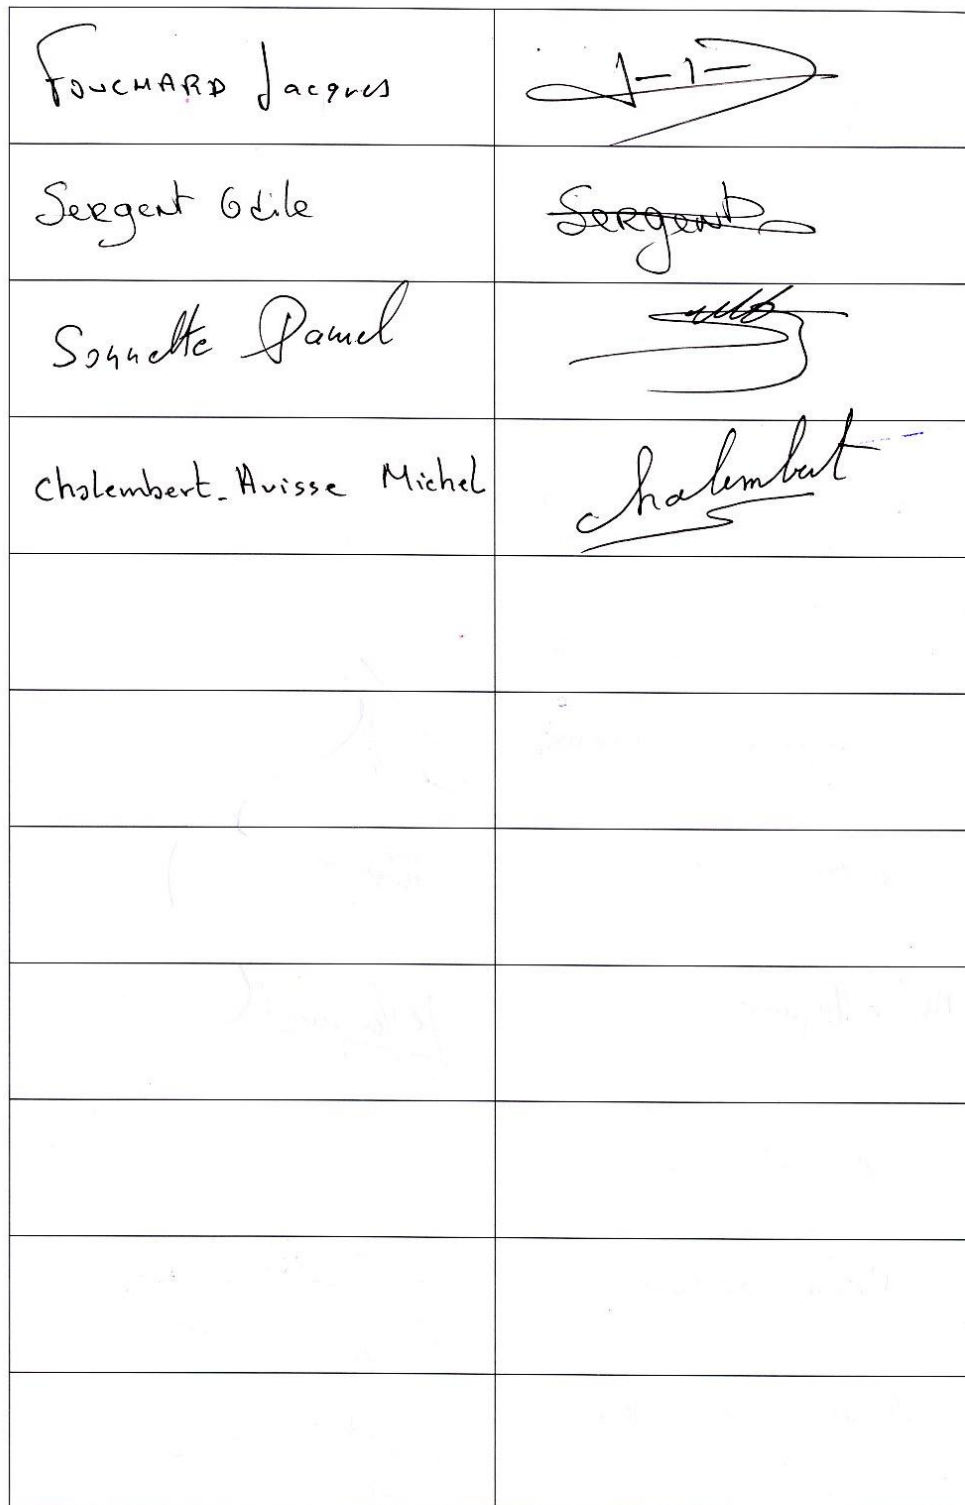 FOUCHARD Jacques
Sergent Odile Sergent
Sonnette Daniel
Chalembert-Avisse Michel Chalembert